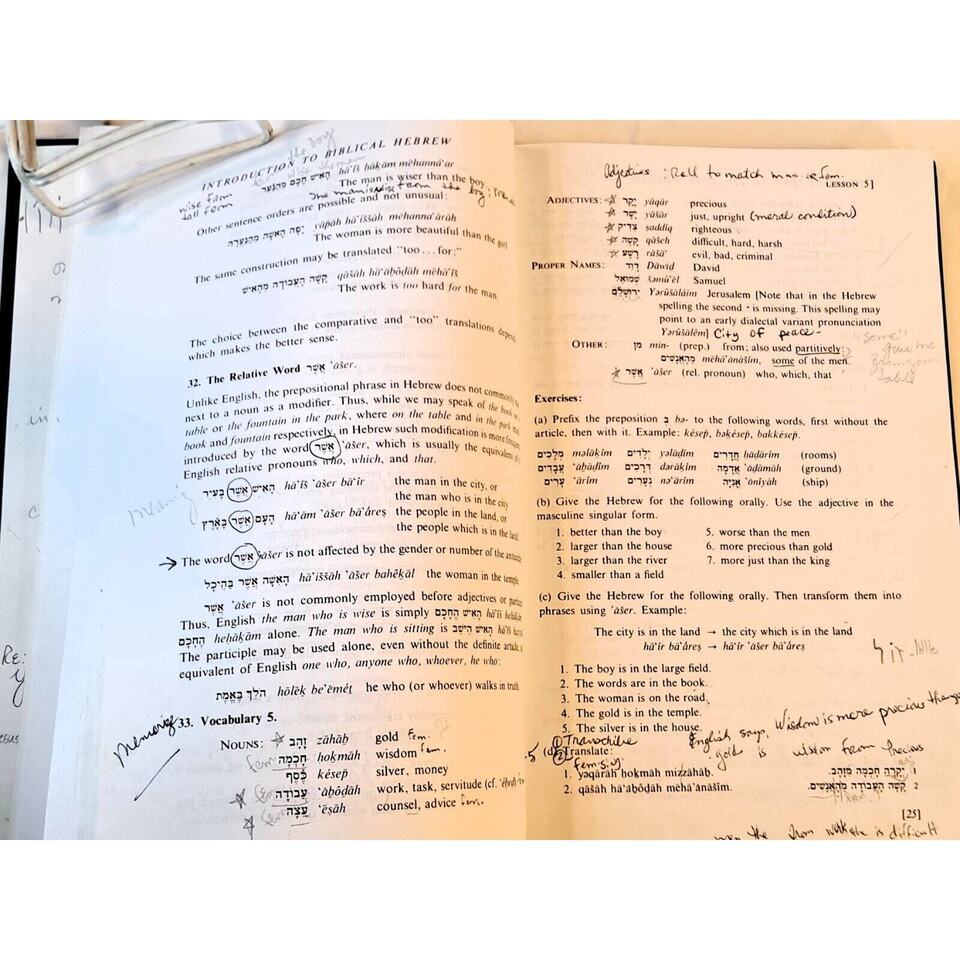 INTRODUCTION TO BIBLICAL HEBREW
הָאִישׁ חָכָם מֵהַנַּעַר hā'îš ḥākām mēhanna'ar
The man is wiser than the boy.
wise from
tall from
Other sentence orders are possible and not unusual:
יָפָה הָאִשָּׁה מֵהַנַּעֲרָה yāpāh hā'iššāh mēhanna'ărāh
The woman is more beautiful than the girl
The same construction may be translated "too . . . for:"
קָשָׁה הָעֲבוֹדָה מֵהָאִישׁ qāšāh hā'ăbôdāh mēhā'îš
The work is too hard for the man.
The choice between the comparative and "too" translations depends
which makes the better sense.
32. The Relative Word אֲשֶׁר 'ăšer.
Unlike English, the prepositional phrase in Hebrew does not commonly
next to a noun as a modifier. Thus, while we may speak of the book on
table or the fountain in the park, where on the table and in the park
book and fountain respectively, in Hebrew such modification is more
introduced by the word אֲשֶׁר 'ăšer, which is usually the equivalent of
English relative pronouns who, which, and that.
הָאִישׁ אֲשֶׁר בָּעִיר hā'îš 'ăšer bā'îr the man in the city, or
the man who is in the city
הָעָם אֲשֶׁר בָּאָרֶץ hā'ām 'ăšer bā'āreṣ the people in the land, or
the people which is in the land
meaning
→ The word אֲשֶׁר 'ăšer is not affected by the gender or number of the
הָאִשָּׁה אֲשֶׁר בַּהֵיכָל hā'iššāh 'ăšer bahêkāl the woman in the temple
אֲשֶׁר 'ăšer is not commonly employed before adjectives or
Thus, English the man who is wise is simply הָאִישׁ הֶחָכָם hā'îš heḥākām
הֶחָכָם heḥākām alone. The man who is sitting is הָאִישׁ הַיֹּשֵׁב hā'îš
The participle may be used alone, even without the definite article,
equivalent of English one who, anyone who, whoever, he who:
הֹלֵךְ בֶּאֱמֶת hōlēk be'ĕmet he who (or whoever) walks in truth
Memorize
33. Vocabulary 5.
NOUNS: זָהָב zāhāb gold fem.
חָכְמָה ḥokmāh wisdom fem.
כֶּסֶף késep silver, money
עֲבוֹדָה 'ăbôdāh work, task, servitude (cf.
עֵצָה 'ēṣāh counsel, advice fem.
Adjectives : Roll to match mas. or fem.
LESSON 5]
ADJECTIVES: יָקָר yāqār precious
יָשָׁר yāšār just, upright (moral condition)
צַדִּיק ṣaddîq righteous
קָשֶׁה qāšeh difficult, hard, harsh
רָשָׁע rāšā' evil, bad, criminal
PROPER NAMES: דָּוִד Dāwīd David
שְׁמוּאֵל šəmû'ēl Samuel
יְרוּשָׁלַםִ Yərûšāláim Jerusalem [Note that in the Hebrew
spelling the second י is missing. This spelling may
point to an early dialectal variant pronunciation
Yərûšālēm] City of peace-
OTHER: מִן min- (prep.) from; also used partitively:
מֵהָאֲנָשִׁים mēhā'ănāšîm, some of the men.
אֲשֶׁר 'ăšer (rel. pronoun) who, which, that
"some"
give me
Exercises:
(a) Prefix the preposition בְּ bə- to the following words, first without the
article, then with it. Example: késep, bəkésep, bakkésep.
מְלָכִים məlākîm יְלָדִים yəlādîm חֲדָרִים ḥădārîm (rooms)
עֲבָדִים 'ăbādîm דְּרָכִים dərākîm אֲדָמָה 'ădāmāh (ground)
עָרִים 'ārîm נְעָרִים nə'ārîm אֳנִיָּה 'ŏnîyāh (ship)
(b) Give the Hebrew for the following orally. Use the adjective in the
masculine singular form.
1. better than the boy 5. worse than the men
2. larger than the house 6. more precious than gold
3. larger than the river 7. more just than the king
4. smaller than a field
(c) Give the Hebrew for the following orally. Then transform them into
phrases using 'ăšer. Example:
The city is in the land → the city which is in the land
hā'îr bā'āreṣ → hā'îr 'ăšer bā'āreṣ
1. The boy is in the large field.
2. The words are in the book.
3. The woman is on the road.
4. The gold is in the temple.
5. The silver is in the house.
English says, Wisdom is more precious than
① Transcribe
gold is wisdom from precious
(d) Translate:
1. yəqārāh ḥokmāh mizzāhāb. יְקָרָה חָכְמָה מִזָּהָב. 1
2. qāšāh hā'ăbôdāh mēhā'ănāšîm. קָשָׁה הָעֲבוֹדָה מֵהָאֲנָשִׁים. 2
[25]
is difficult